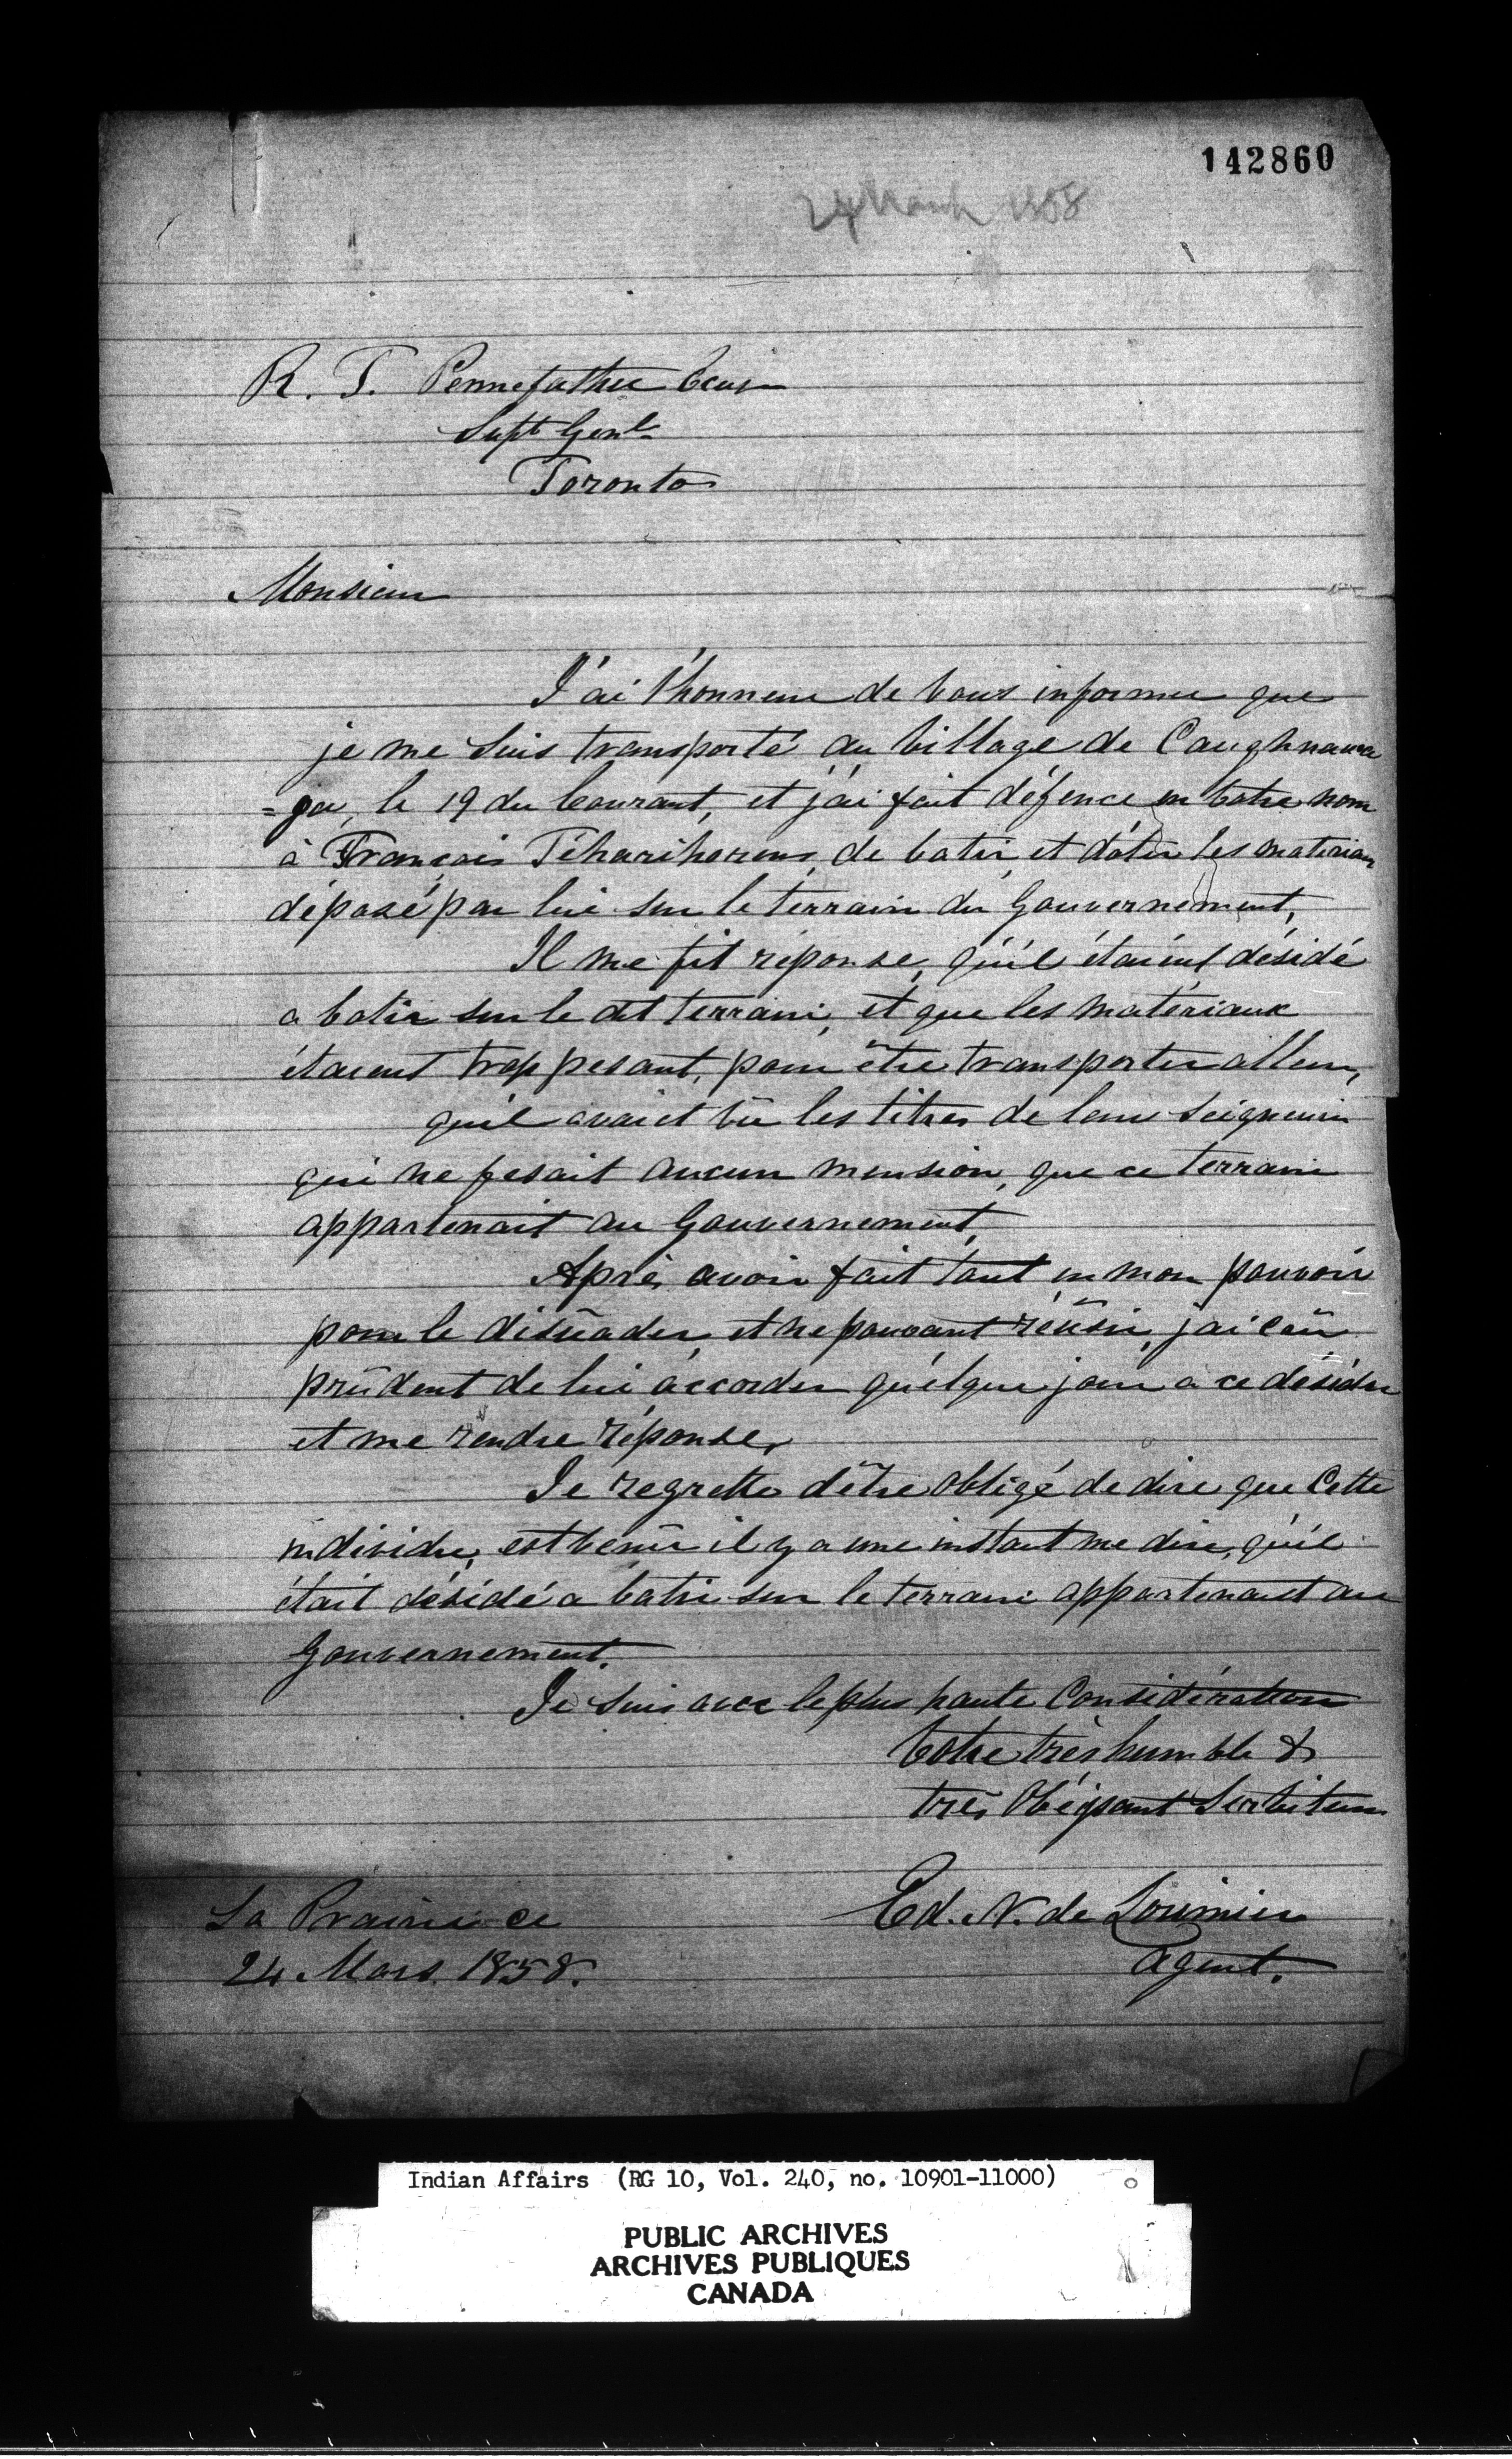 142860
24 March 1858
R. T. Pennefather Ecuyr
Supt Genl
Toronto
Monsieur
J'ai l'honneur de vous informer que
je me suis transporté au village de Caughnawa
=ga, le 19 du Courant, et j'ai fait défence en votre nom
à François Téharihorens, de batir, et d'oter les materiaux
déposé par lui sur le terrain du Gouvernement,
Il me fit réponse, qu'il étaient désidé
a batir sur le dit terrain, et que les matériaux
étaient trop pesant, pour être transporter alleur,
qu'il avaiet vû les titres de leur Seigneurie
qui ne fesait aucun mension, que ce terrain
appartenait au Gouvernement,
Après avoir fait tout en mon pouvoir
pour le disuader, et ne pouvant réüsir, j'ai crû
prûdent de lui accorder quélque jour a ce désider
et me rendre réponse,
Je regrette d'être obligé de dire que Cette
individu, est venû il y a une instant me dire, qu'il
était désidé a batir sur le terrain appartenant au
Gouvernement.
Je suis avec le plus haute Considération
Votre très humble &
très Obéissant Serviteur
Ed. N. de Lorimier
agent.
La Prairie ce
24 Mars 1858.
Indian Affairs (RG 10, Vol. 240, no. 10901-11000)
PUBLIC ARCHIVES
ARCHIVES PUBLIQUES
CANADA